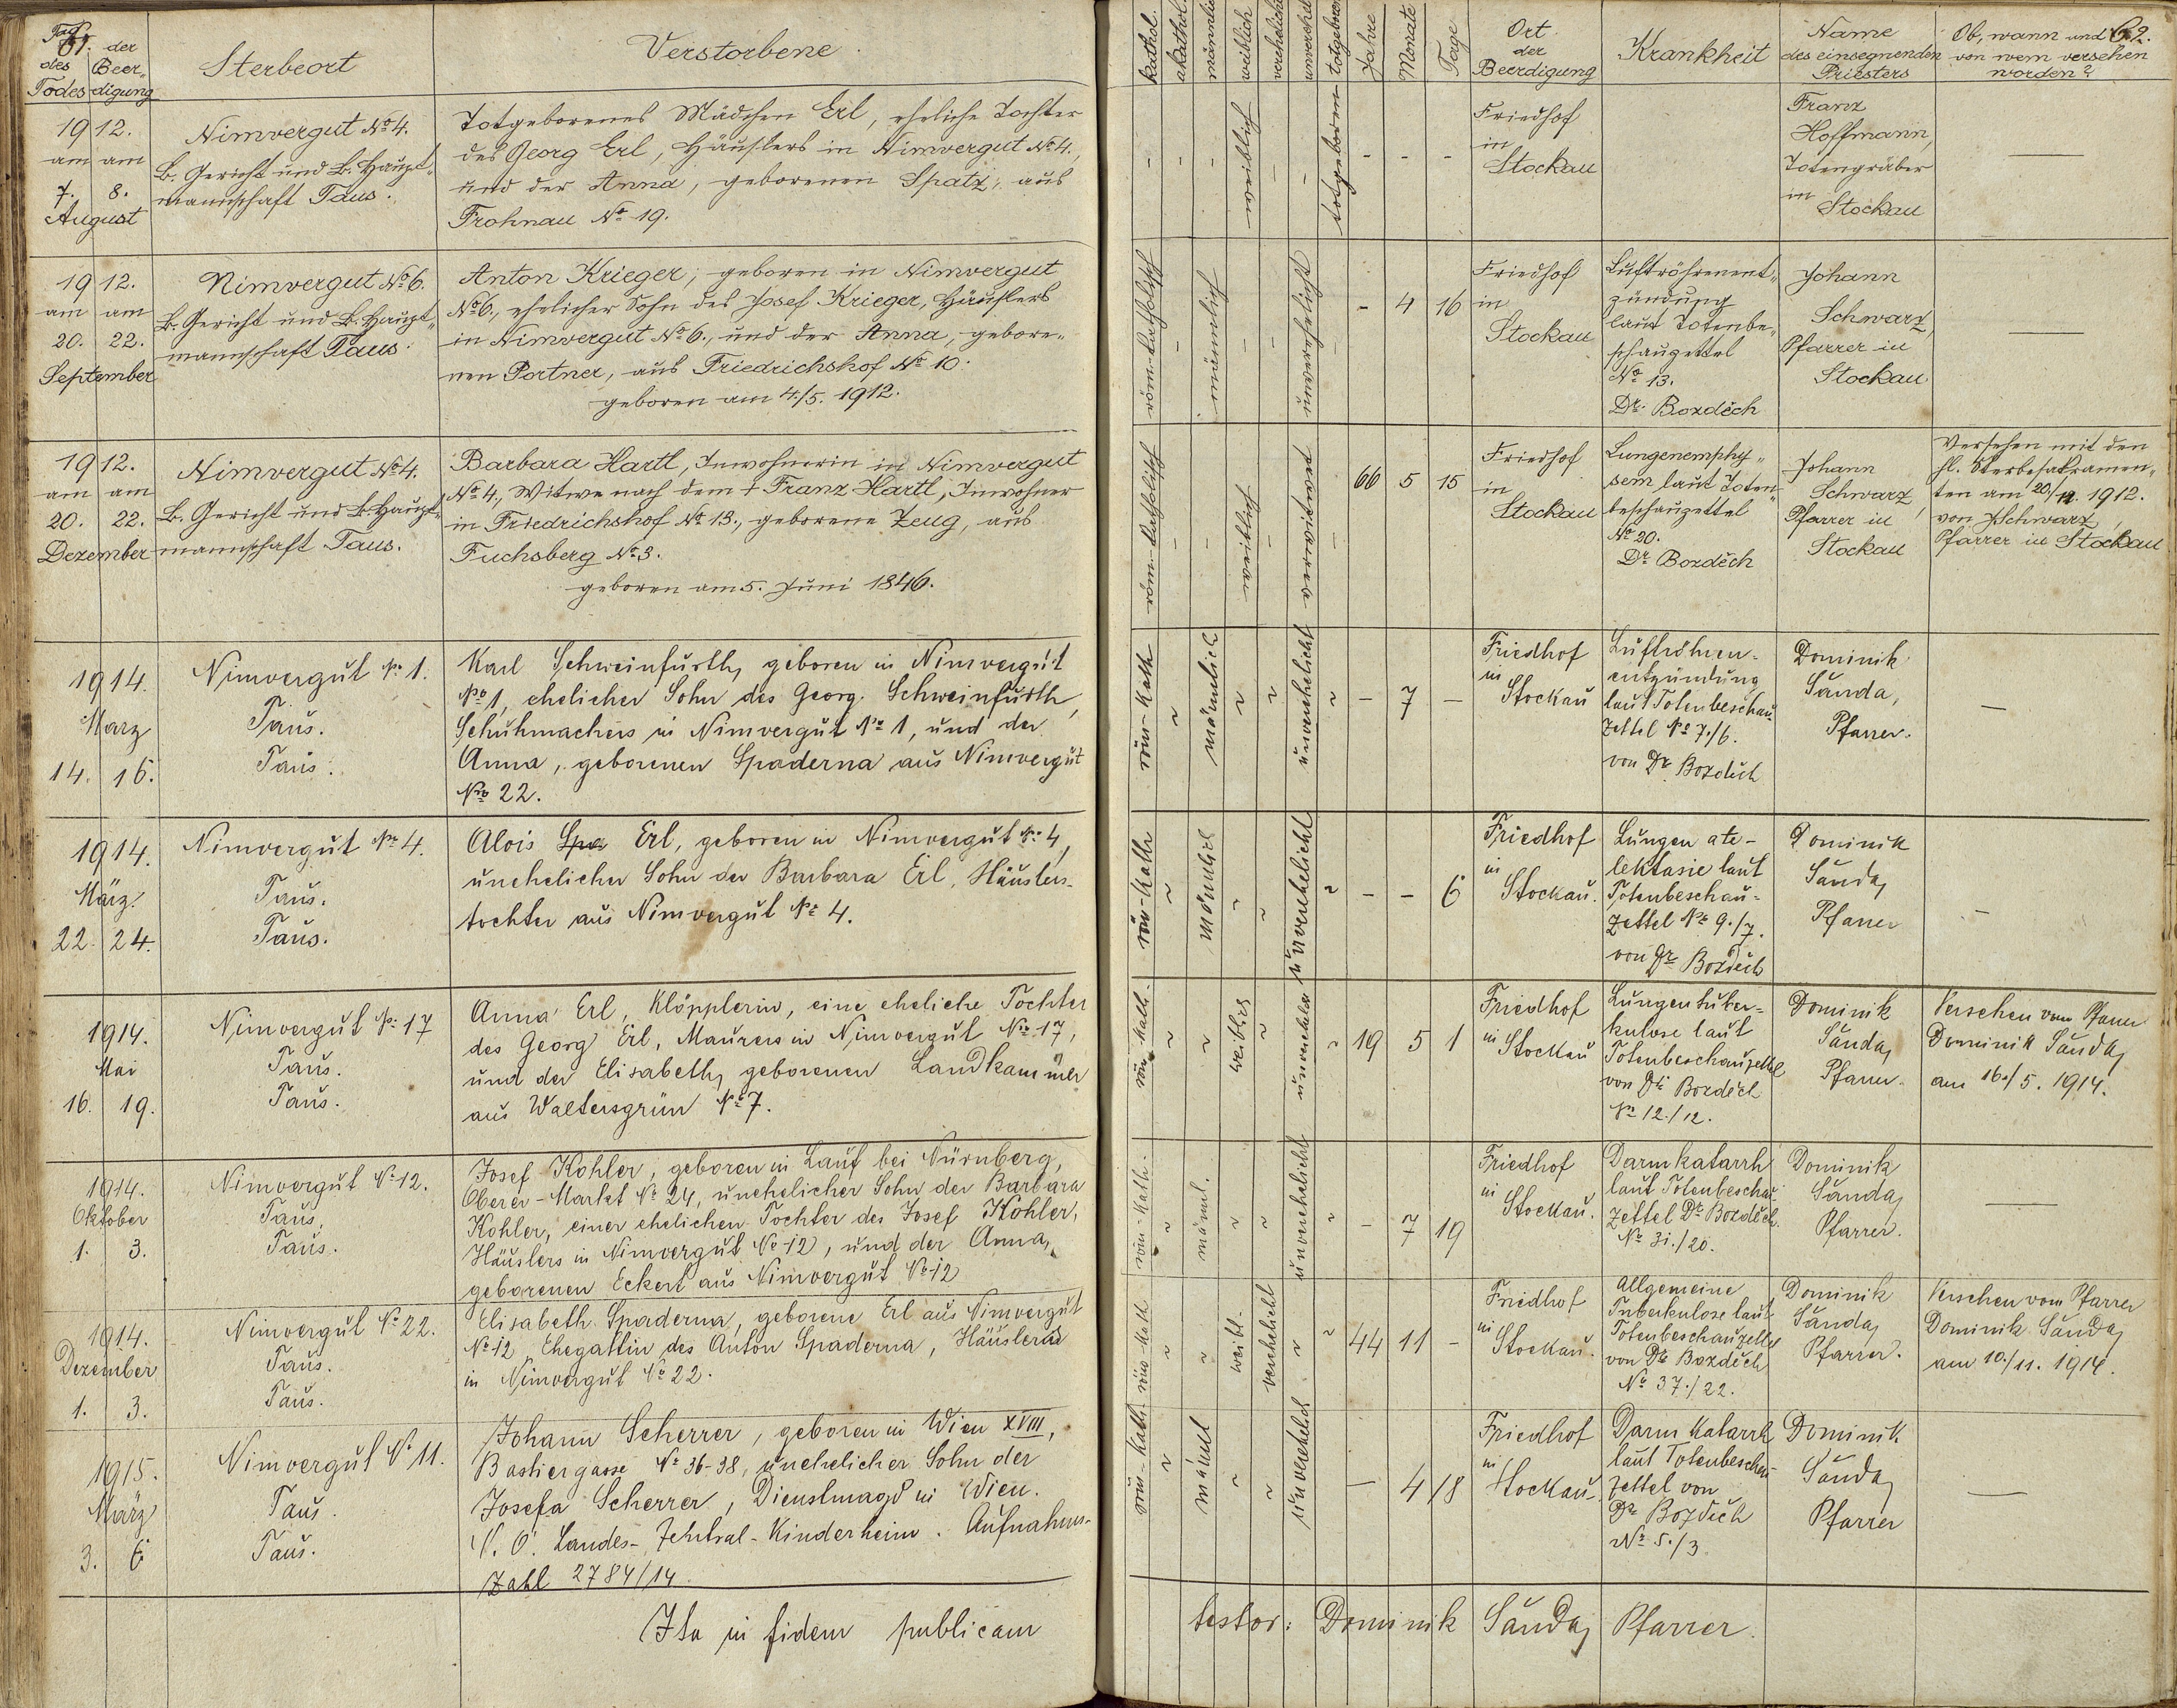 Tag
61. der
des Beer-
Todes digung
Sterbeort
Verstorbene.
kathol.
akathol.
männlich
weiblich
verehelicht
unverehel.
totgeboren
Jahre
Monate
Tage
Ort
der
Beerdigung
Krankheit
Name
des einsegnenden
Priesters
Ob, wann und 62.
von wem versehen
worden?
1912.
am am
7. 8.
August
Nimvergut No 4.
B. Gericht und B. Haupt-
mannschaft Taus.
Totgeborenes Mädchen Erl, eheliche Tochter
des Georg Erl, Häuslers in Nimvergut No 4.,
und der Anna, geborenen Spatz, aus
Frohnau No 19.
- - - weiblich - - totgeboren - - -
Friedhof
in
Stockau
Franz
Hoffmann,
Totengräber
in
Stockau
—
1912.
am am
20. 22.
September
Nimvergut No 6.
B. Gericht und B. Haupt-
mannschaft Taus.
Anton Krieger, geboren in Nimvergut
No 6., ehelicher Sohn des Josef Krieger, Häuslers
in Nimvergut No 6., und der Anna, gebore-
nen Portner, aus Friedrichshof No 10.
geboren am 4./5. 1912.
röm-katholisch - männlich - - unverehelicht - - 4 16
Friedhof
in
Stockau
Luftröhrenent-
zündung
laut Totenbe-
schauzettel
No 13.
Dr. Bozděch
Johann
Schwarz,
Pfarrer in
Stockau
—
1912.
am am
20. 22.
Dezember
Nimvergut No 4.
B. Gericht und B. Haupt-
mannschaft Taus.
Barbara Hartl, Inwohnerin in Nimvergut
No 4., Witwe nach dem † Franz Hartl, Inwohner
in Friedrichshof No 13., geborene Zeug, aus
Fuchsberg No 3.
geboren am 5. Juni 1846.
röm-katholisch - - weiblich - verwitwet - 66 5 15
Friedhof
in
Stockau
Lungenemphy-
sem laut Toten-
beschauzettel
No 20.
Dr Bozděch
Johann
Schwarz,
Pfarrer in
Stockau
Versehen mit den
hl. Sterbesakramen-
ten am 20./12. 1912.
von J. Schwarz,
Pfarrer in Stockau
1914.
März
14. 16.
Nimvergut No 1.
Taus.
Taus.
Karl Schweinfurth, geboren in Nimvergut
No 1, ehelicher Sohn des Georg Schweinfurth,
Schuhmachers in Nimvergut No 1, und der
Anna, geborenen Spaderna aus Nimvergut
No 22.
röm-kath ~ männlich ~ ~ unverehelicht ~ - 7 -
Friedhof
in
Stockau
Luftröhren-
entzündung
laut Totenbeschau-
zettel No 7./6.
von Dr Bozděch
Dominik
Sánda,
Pfarrer.
—
1914.
März.
22. 24.
Nimvergut No 4.
Taus.
Taus.
Alois Spa Erl, geboren in Nimvergut No 4,
unehelicher Sohn der Barbara Erl, Häuslers-
tochter aus Nimvergut No 4.
röm-kath ~ männlich ~ ~ unverehelicht ~ - - 6
Friedhof
in
Stockau.
Lungen ate-
lektasie laut
Totenbeschau-
zettel No 9./7.
von Dr Bozděch
Dominik
Sánda,
Pfarrer
—
1914.
Mai
16. 19.
Nimvergut No 17
Taus.
Taus.
Anna Erl, Klöpplerin, eine eheliche Tochter
des Georg Erl, Maurers in Nimvergut No 17,
und der Elisabeth, geborenen Landkammer
aus Waltersgrün No 7.
röm-kath. ~ ~ weiblich ~ unverehelicht ~ 19 5 1
Friedhof
in
Stockau
Lungentuber-
kulose laut
Totenbeschauzettel
von Dr Bozděch
No 12./12.
Dominik
Sánda,
Pfarrer.
Versehen vom Pfarrer
Dominik Sánda,
am 16./5. 1914.
1914.
Oktober
1. 3.
Nimvergut No 12.
Taus.
Taus.
Josef Kohler, geboren in Lauf bei Nürnberg,
Oberer-Markt No 24, unehelicher Sohn der Barbara
Kohler, einer ehelichen Tochter des Josef Kohler,
Häuslers in Nimvergut No 12, und der Anna,
geborenen Eckert aus Nimvergut No 12
röm-kath. ~ männl. ~ ~ unverehelicht ~ - 7 19
Friedhof
in
Stockau.
Darmkatarrh
laut Totenbeschau-
zettel Dr Bozděch.
No 31./20.
Dominik
Sánda,
Pfarrer.
—
1914.
Dezember
1. 3.
Nimvergut No 22.
Taus.
Taus.
Elisabeth Spaderna, geborene Erl aus Nimvergut
No 12, Ehegattin des Anton Spaderna, Häuslers
in Nimvergut No 22.
röm-kath ~ ~ weibl. verehelicht ~ ~ 44 11 -
Friedhof
in
Stockau.
Allgemeine
Tuberkulose laut
Totenbeschauzettel
von Dr Bozděch
No 37./22.
Dominik
Sánda,
Pfarrer.
Versehen vom Pfarrer
Dominik Sánda,
am 10./11. 1914.
1915.
März
3. 6
Nimvergut No 11.
Taus.
Taus.
Johann Scherrer, geboren in Wien XVIII,
Bastiengasse No 36-38, unehelicher Sohn der
Josefa Scherrer, Dienstmagd in Wien.
N. Ö. Landes-Zentral-Kinderheim. Aufnahms-
Zahl 2784/14.
röm-kath. ~ männl ~ ~ unverehelich — 4 18
Friedhof
in
Stockau.
Darmkatarrh
laut Totenbeschau-
zettel von
Dr Bozděch
No 5./3
Dominik
Sánda,
Pfarrer
—
Ita in fidem publicam testor: Dominik Sánda, Pfarrer.